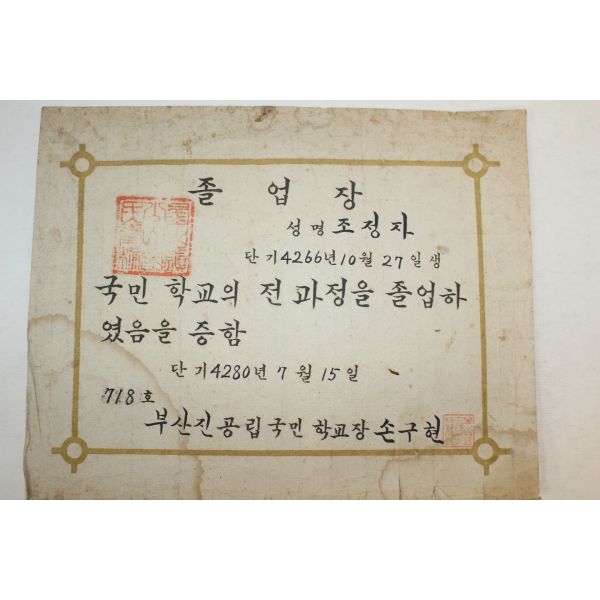 졸 업 장
성명 조정자
단기 4266년 10월 27일생
국민 학교의 전 과정을 졸업하
였음을 증함
단기 4280년 7월 15일
718호
부산진공립국민학교장 손구현